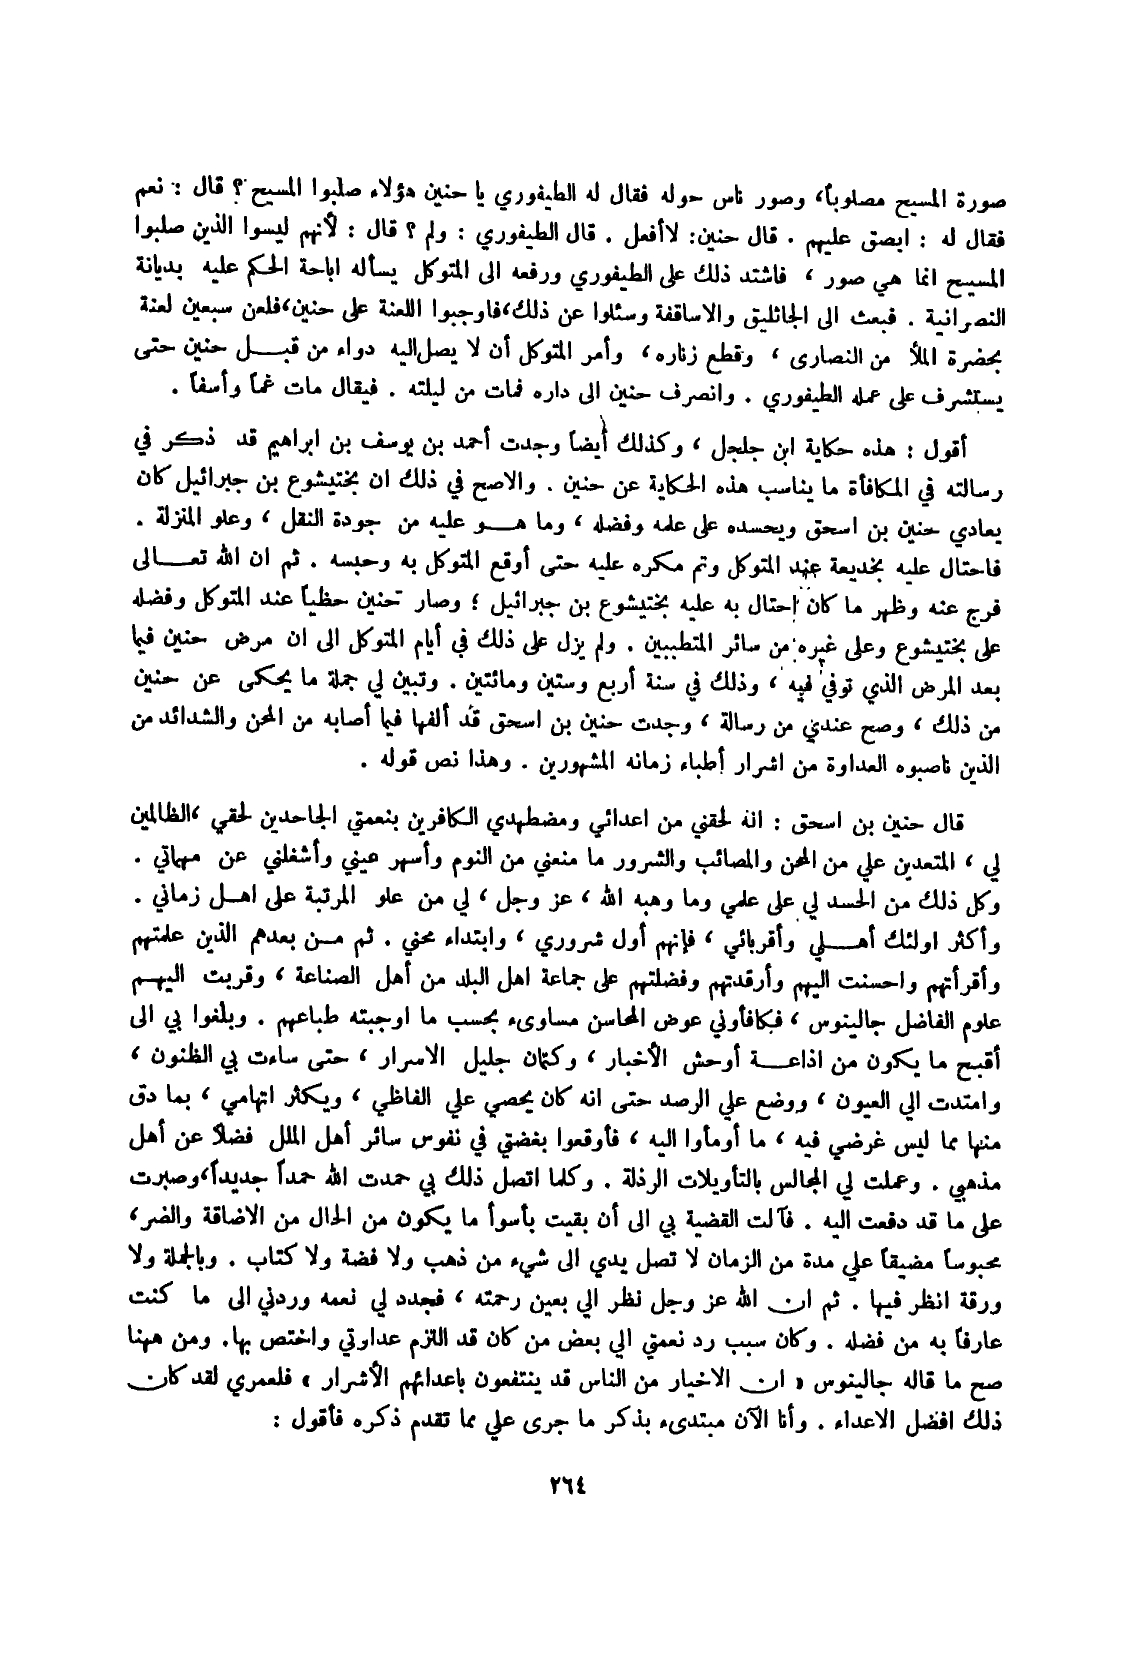 صورة المسيح مصلوباً، وصور ناس حوله فقال له الطيفوري يا حنين هؤلاء صلبوا المسيح ؟ قال : نعم
فقال له : ابصق عليهم . قال حنين: لا أفعل . قال الطيفوري : ولم ؟ قال : لأنهم ليسوا الذين صلبوا
المسيح انما هي صور ، فاشتد ذلك على الطيفوري ورفعه الى المتوكل يسأله اباحة الحكم عليه بديانة
النصرانية . فبعث الى الجاثليق والاساقفة وسئلوا عن ذلك،فاوجبوا اللعنة على حنين،فلعن سبعين لعنة
بحضرة الملأ من النصارى ، وقطع زناره، وأمر المتوكل أن لا يصل اليه دواء من قبـــل حنين حتى
يستشرف على عمله الطيفوري . وانصرف حنين الى داره فمات من ليلته . فيقال مات غماً وأسفاً .
أقول : هذه حكاية ابن جلجل ، وكذلك أيضاً وجدت أحمد بن يوسف بن ابراهيم قد ذكر في
رسالته في المكافأة ما يناسب هذه الحكاية عن حنين . والاصح في ذلك ان بختيشوع بن جبرائيل كان
يعادي حنين بن اسحق ويحسده على علمه وفضله ، وما هـــو عليه من جودة النقل ، وعلو المنزلة .
فاحتال عليه بخديعة عند المتوكل وتم مكره عليه حتى أوقع المتوكل به وحبسه . ثم ان الله تعـــالى
فرج عنه وظهر ما كان إحتال به عليه بختيشوع بن جبرائيل ؛ وصار حنين حظياً عند المتوكل وفضله
على بختيشوع وعلى غيره من سائر المتطببين . ولم يزل على ذلك في أيام المتوكل الى ان مرض حنين فيما
بعد المرض الذي توفي فيه ، وذلك في سنة أربع وستين ومائتين . وتبين لي جملة ما يحكى عن حنين
من ذلك ، وصح عندي من رسالة ، وجدت حنين بن اسحق قد ألفها فيما أصابه من المحن والشدائد من
الذين ناصبوه العداوة من اشرار أطباء زمانه المشهورين . وهذا نص قوله .
قال حنين بن اسحق : انه لحقني من اعدائي ومضطهدي الكافرين بنعمتي الجاحدين لحقي ،الظالمين
لي ، المتعدين علي من المحن والمصائب والشرور ما منعني من النوم وأسهر عيني وأشغلني عن مهماتي .
وكل ذلك من الحسد لي على علمي وما وهبه الله ، عز وجل ، لي من علو المرتبة على اهـــل زماني .
وأكثر اولئك أهـــلي وأقربائي ، فإنهم أول شروري ، وابتداء محني . ثم مـــن بعدهم الذين علمتهم
وأقرأتهم واحسنت اليهم وأرفدتهم وفضلتهم على جماعة اهل البلد من أهل الصناعة ، وقربت اليهـــم
علوم الفاضل جالينوس ، فكافأوني عوض المحاسن مساوىء بحسب ما اوجبته طباعهم . وبلغوا بي الى
أقبح ما يكون من اذاعـــة أوحش الأخبار ، وكتمان جليل الاسرار ، حتى ساءت بي الظنون ،
وامتدت الي العيون ، ووضع علي الرصد حتى انه كان يحصي علي الفاظي ، ويكثر اتهامي ، بما دق
منها مما ليس غرضي فيه ، ما أومأوا اليه ، فأوقعوا بغضتي في نفوس سائر أهل الملل فضلاً عن أهل
مذهبي . وعملت لي المجالس بالتأويلات الرذلة . وكلما اتصل ذلك بي حمدت الله حمداً جديداً،وصبرت
على ما قد دفعت اليه . فآلت القضية بي الى أن بقيت بأسوأ ما يكون من الحال من الاضاقة والضر،
محبوساً مضيقاً علي مدة من الزمان لا تصل يدي الى شيء من ذهب ولا فضة ولا كتاب . وبالجملة ولا
ورقة انظر فيها . ثم ان الله عز وجل نظر الي بعين رحمته ، فجدد لي نعمه وردني الى ما كنت
عارفاً به من فضله . وكان سبب رد نعمتي الي بعض من كان قد التزم عداوتي واختص بها. ومن ههنا
صح ما قاله جالينوس « ان الاخيار من الناس قد ينتفعون باعدائهم الأشرار » فلعمري لقد كان
ذلك افضل الاعداء . وأنا الآن مبتدىء بذكر ما جرى علي مما تقدم ذكره فأقول :
٢٦٤